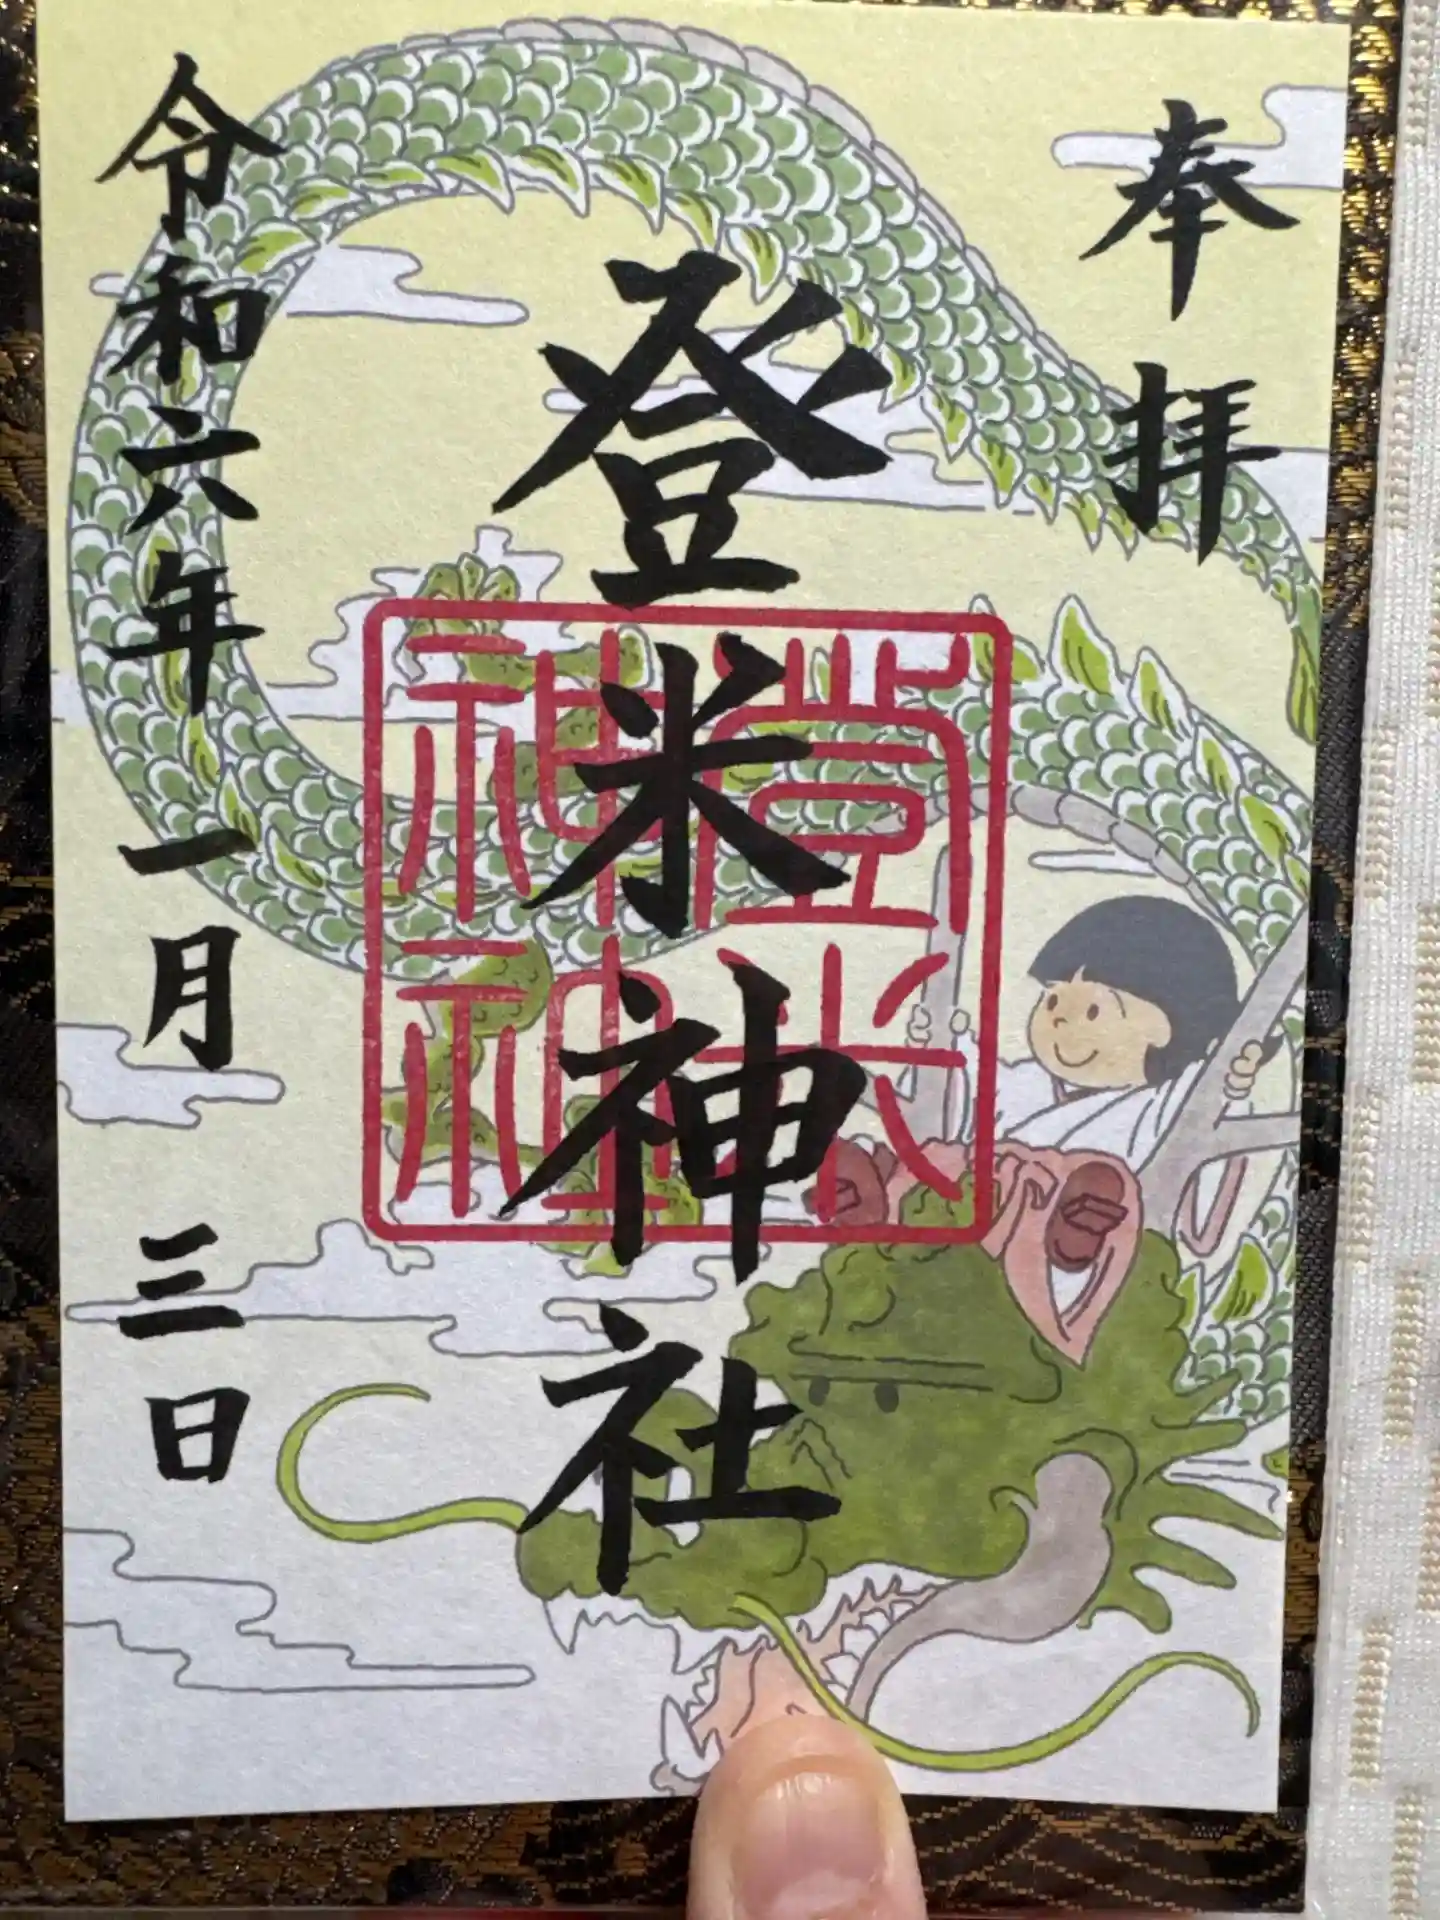 奉拝
登米神社
登米神社
令和六年一月三日